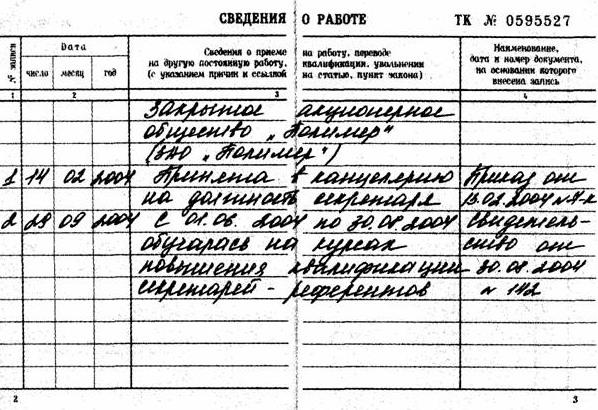 СВЕДЕНИЯ О РАБОТЕ ТК № 0595527
№ записи
Дата
число месяц год
Сведения о приеме на работу, переводе
на другую постоянную работу, квалификации, увольнении
(с указанием причин и ссылкой на статью, пункт закона)
Наименование,
дата и номер документа,
на основании которого
внесена запись
1 2 3 4
Закрытое акционерное
общество „Полимер"
(ЗАО „Полимер")
1 14 02 2004 Принята в канцелярию Приказ от
на должность секретаря 13.02.2004 № 4-к
2 28 09 2004 С 01.06.2004 по 30.08.2004 Свидетель-
обучалась на курсах ство от
повышения квалификации 30.08.2004
секретарей-референтов № 142
2 3